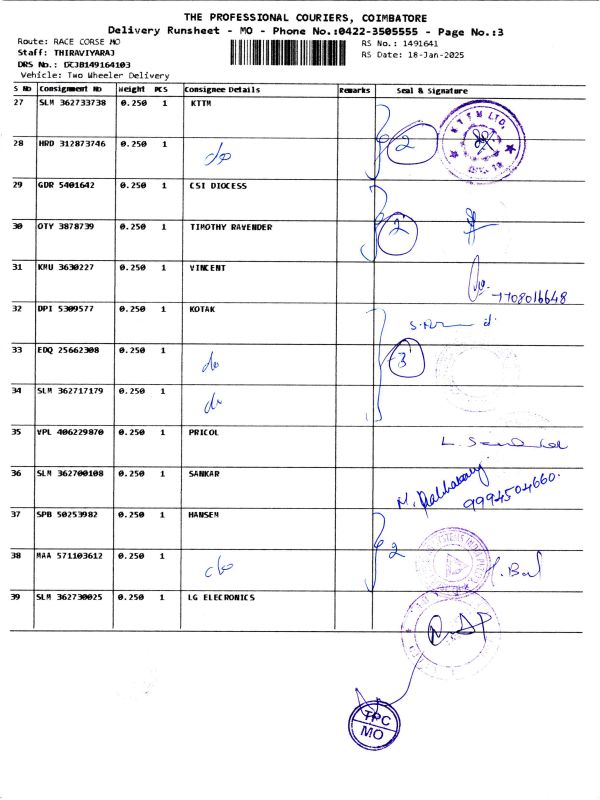 THE PROFESSIONAL COURIERS, COIMBATORE
Delivery Runsheet - MO - Phone No.:0422-3505555 - Page No.:3
Route: RACE CORSE MO
RS No.: 1491641
Staff: THIRAVIYARAJ
RS Date: 18-Jan-2025
DRS No.: DCJB149164103
Vehicle: Two Wheeler Delivery
S No Consignment No Weight PCS Consignee Details Remarks Seal & Signature
27 SLM 362733738 0.250 1 KTTM 2
KTTM LTD.
28 HRD 312873746 0.250 1 do
29 GDR 5401642 0.250 1 CSI DIOCESS
30 OTY 3878739 0.250 1 TIMOTHY RAVENDER 2
31 KMU 3630227 0.250 1 VINCENT
7708016648
32 DPI 5309577 0.250 1 KOTAK
33 EDQ 25662308 0.250 1 do 3
34 SLM 362717179 0.250 1 do
35 VPL 406229870 0.250 1 PRICOL
36 SLM 362700108 0.250 1 SANKAR
9994504660.
37 SPB 50253982 0.250 1 HANSEM 2
38 MAA 571103612 0.250 1 do
39 SLM 362730025 0.250 1 LG ELECRONICS
TPC
MO